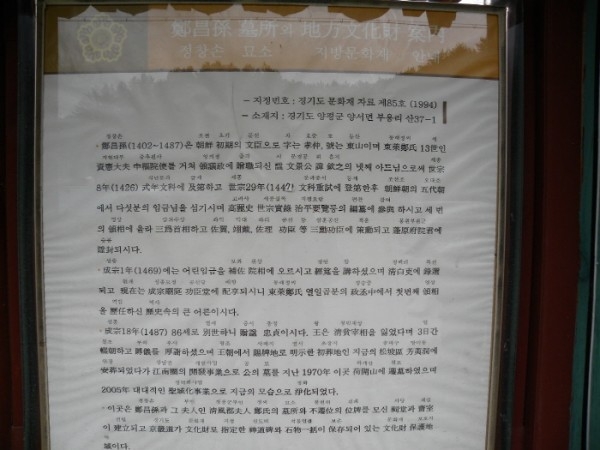 鄭昌孫 墓所와 地方文化財 案內
정창손 묘소 지방문화재 안내
- 지정번호 : 경기도 문화재 자료 제85호 (1994)
- 소재지 : 경기도 양평군 양서면 부용리 산37-1
· 鄭昌孫(1402~1487)은 朝鮮 初期의 文臣으로 字는 孝仲, 號는 東山이며 東萊鄭氏 13世인
資憲大夫 中樞院使를 거쳐 領議政에 追贈되신 諡 文景公 諱 欽之의 넷째 아드님으로써 世宗
8年(1426) 式年文科에 及第하고 世宗29年(1447) 文科重試에 登第한후 朝鮮朝의 五代朝
에서 다섯분의 임금님을 섬기시며 高麗史 世宗實錄 治平要覽等의 編纂에 參與 하시고 세 번
의 領相에 올라 三爲首相하고 佐翼, 翊戴, 佐理 功臣 等 三勳功臣에 策勳되고 蓬原府院君에
되시다.
· 成宗1年(1469)에는 어린임금을 補佐 院相에 오르시고 經筵을 講하셨으며 淸白吏에 錄選
되고 現在는 成宗廟庭 功臣堂에 配享되시니 東萊鄭氏 열일곱분의 政丞中에서 첫번째 領相
을 歷任하신 歷史속의 큰 어른이시다.
· 成宗18年(1487) 86세로 別世하니 諡號 忠貞이시다. 王은 淸貧宰相을 잃었다며 3日간
輟朝하고 葬儀를 厚하셨으며 王朝에서 賜牌地로 明示한 初葬地인 지금의 松坡區 芳荑院에
安葬되었다가 江南圈의 開發事業으로 公의 墓를 지난 1970年 이곳 荷開山에 遷墓하였으며
2005年 대대적인 聖域化事業으로 지금의 모습으로 淨化되었다.
· 이곳은 鄭昌孫과 그 夫人인 淸風郡夫人 鄭氏의 墓所와 不遷位의 位牌를 모신 祠堂과 齋室
이 建立되고 京畿道가 文化財로 指定한 神道碑와 石物一括이 保存되어 있는 文化財 保護地
域이다.